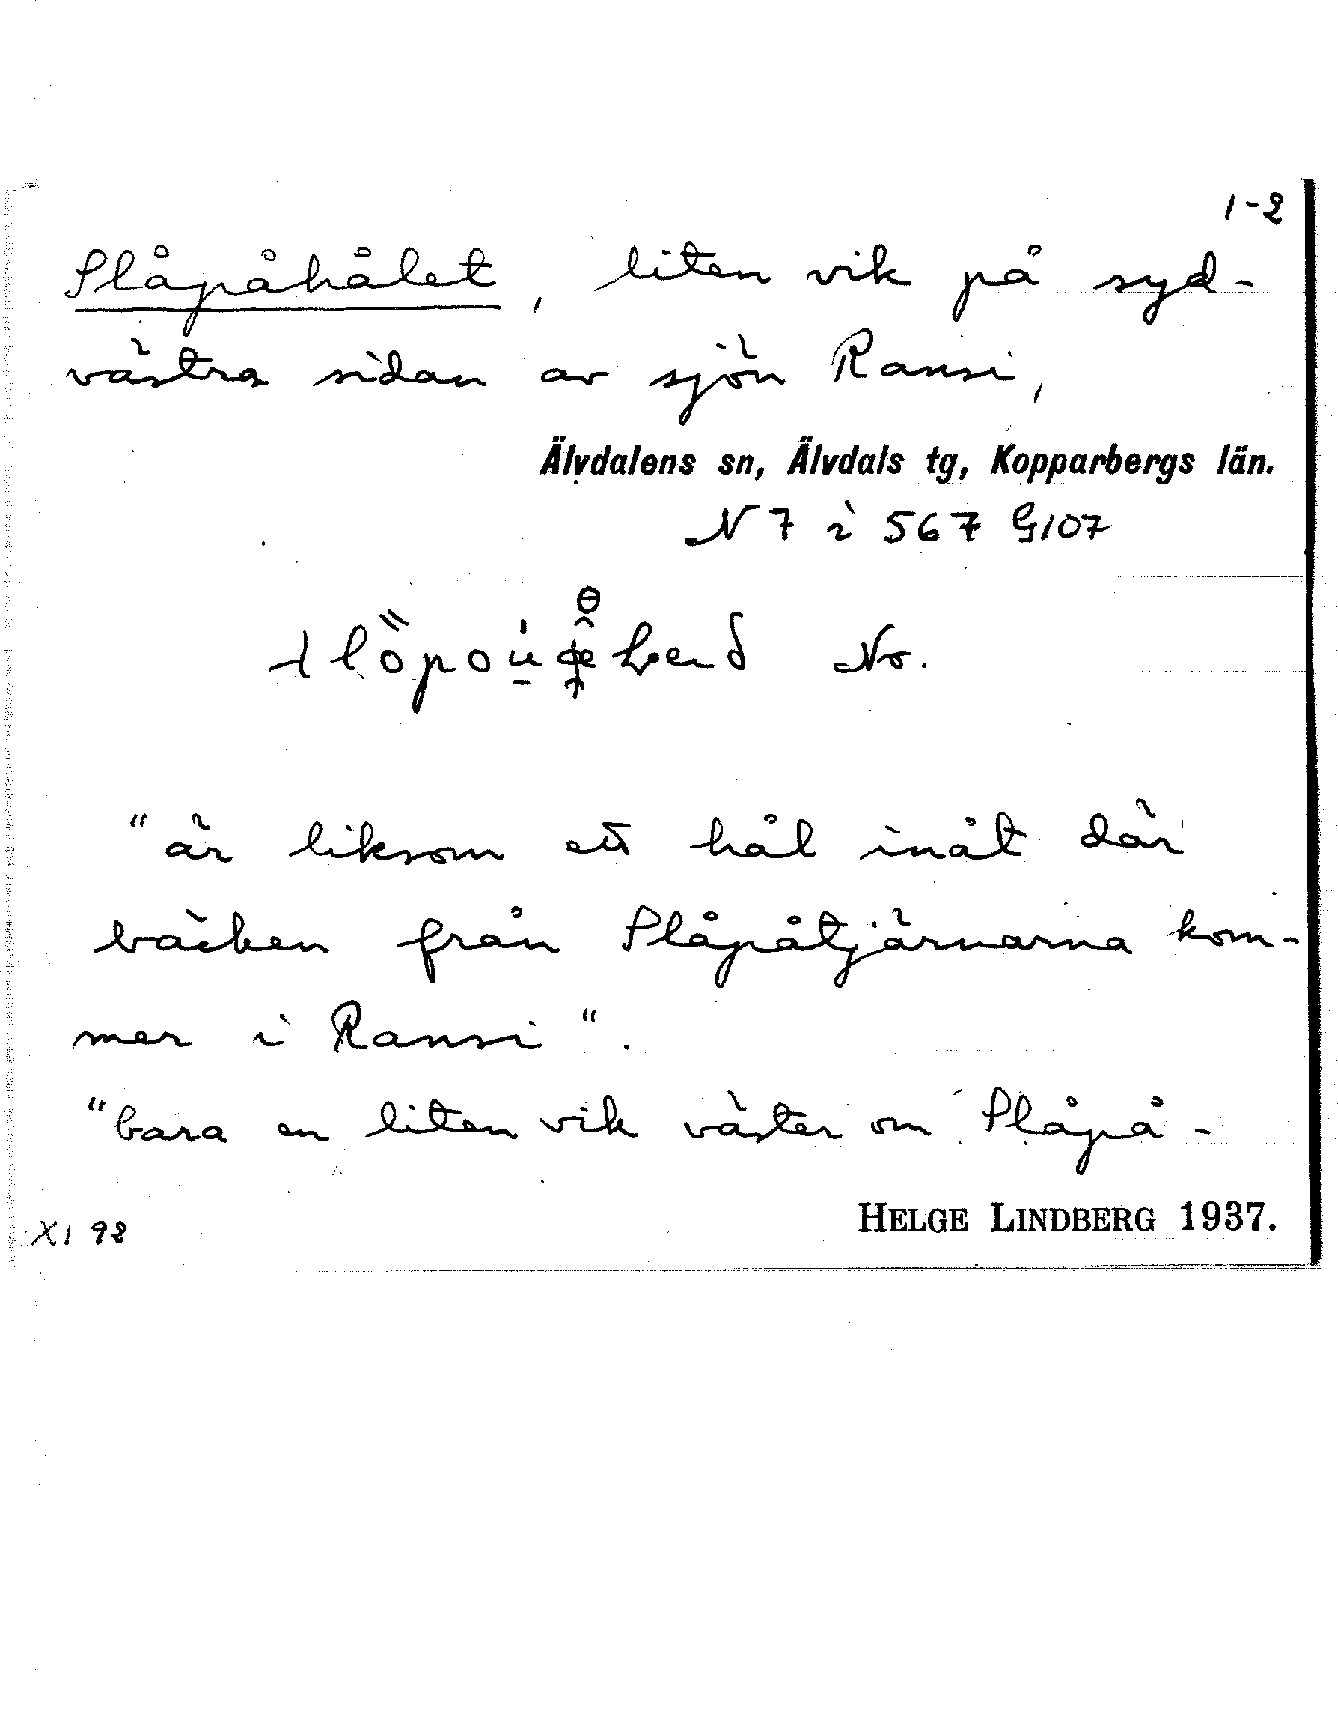 1-2
Slåpåhålet, liten vik på syd-
västra sidan av sjön Ransi,
Älvdalens sn, Älvdals tg, Kopparbergs län.
N 7 i 567 G107
No.
"är liksom ett hål inåt där
bäcken från Slåpåtjärnarna kom-
mer i Ransi".
"bara en liten vik väster om Slåpå-
HELGE LINDBERG 1937.
XI 98